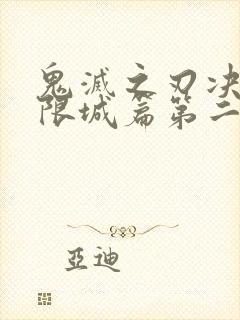 鬼滅之刃决
限城篇第二
亞迪